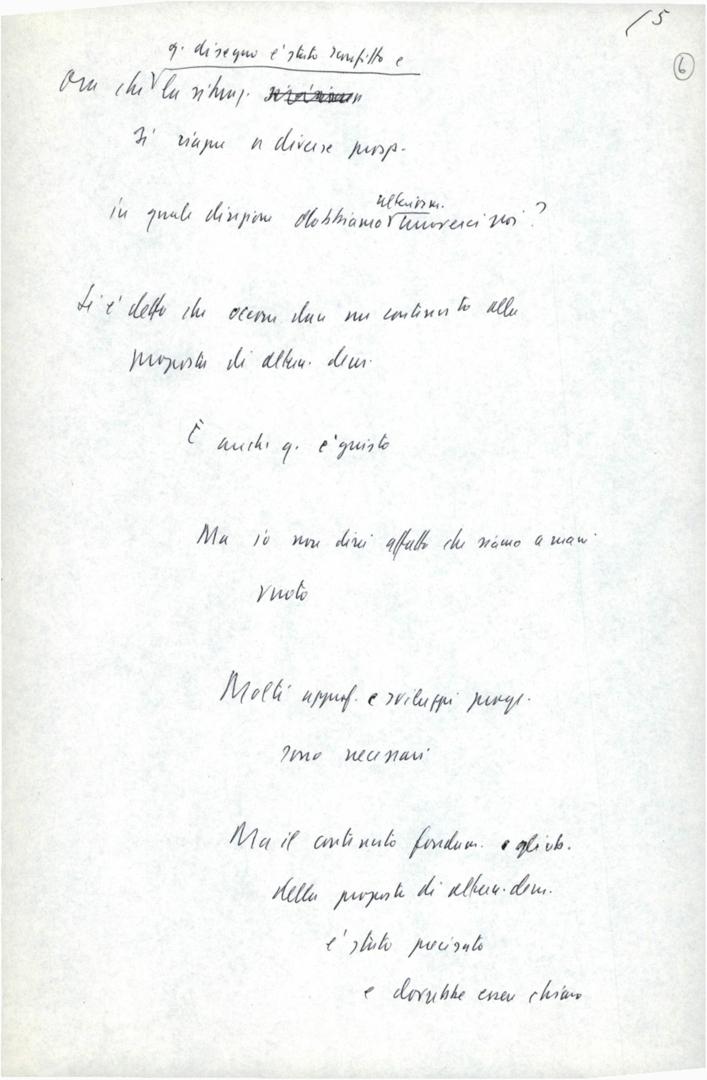 15
6
q. disegno è stato sconfitto e
Ora che la situaz.
si riapre a diverse prosp.
in quale direzione dobbiamo ulteriorm. muoverci noi?
Si è detto che occorre dare un contenuto alla
proposta di altern. dem.
È anche q. è giusto
Ma io non direi affatto che siamo a mani
vuote
Molti approf. e sviluppi progr.
sono necessari
Ma il contenuto fondam. e gli ob.
della proposta di altern. dem.
è stato precisato
e dovrebbe essere chiaro